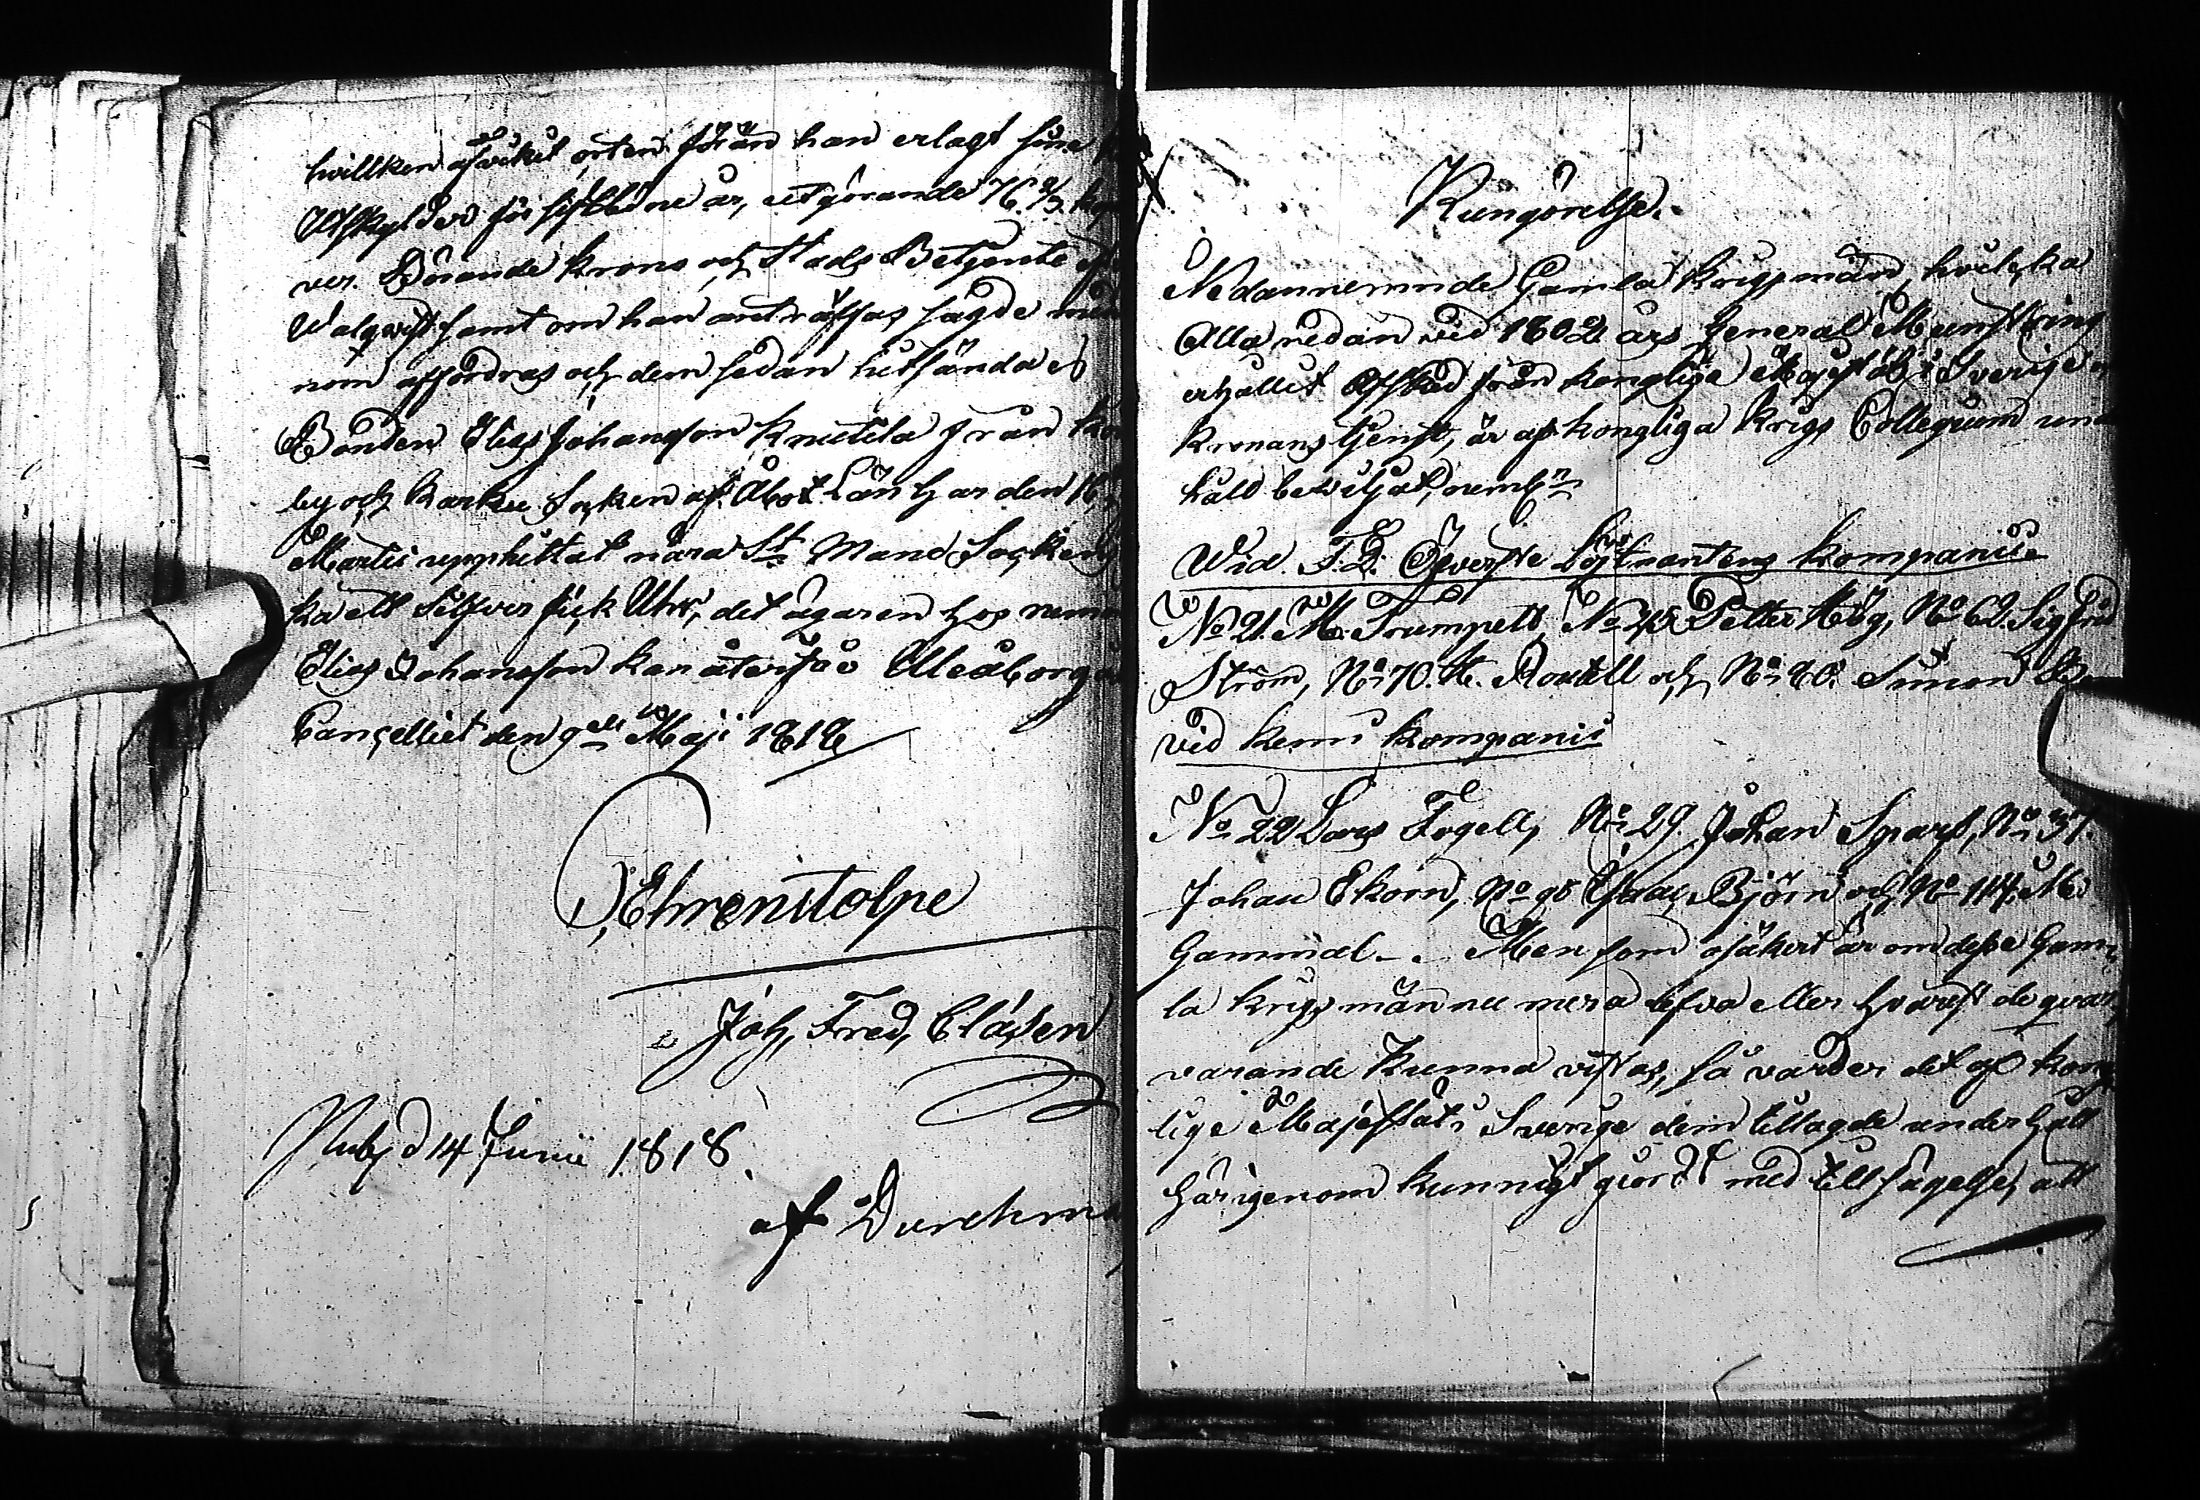 hvillken afvikit orten förän han erlagt sina
Utskylder för sistledne år, utgörande 76 2/3 kop
ver. Börande krono och Stads Betjente
Walqvist samt om han anträffas sagde
nom affordras och dem sedan hitsända
Bonden Elias Johansson Knutila från
by och Karku Socken af Åbo Län har den 16
Martii upphittat nära St Mans Sockens
ka ett Silfver fick Uhr, det ägaren hos nem
Elias Johansson kan återfå Uleåborgs
Cancelliet den 9de Maji 1818
Ehrenstolpe
Joh, Fred, Clásen
Publ d 14 Junii 1818.
af Durchm
Kungörelse.
Nedannemnde Gamla krigsmän, hvilka
Alla redan vid 1802 års General Munstring
erhållit Afsked från konglige Majestäts i Sverige
kronans tjenst, är af kongliga krigs Collegium un
håld beviljat, neml:n
Wid T.D. Öfverste Löjtnantens Kompanie
No 21. M. Trumpett, No 45 Petter Hög, No 62. Sigfrid
Ström, No 70. H. Roxell och No 80. Simon
vid Kemi Kompanii
No 22 Lars Fogell, No 29. Johan Sparf, No 37.
Johan Ekorn, No 98 Isaac Björn och No 114. M.
Gammal. - Men som osäkert är om desse Gam
la krigsmän nu mera lefva eller hvarest de qvar
varande kunna vistas, så varder det af kong
lige Majestät i Sverige dem tillagde underhåll
härigenom kunnigt giordt med tillsägelse, att